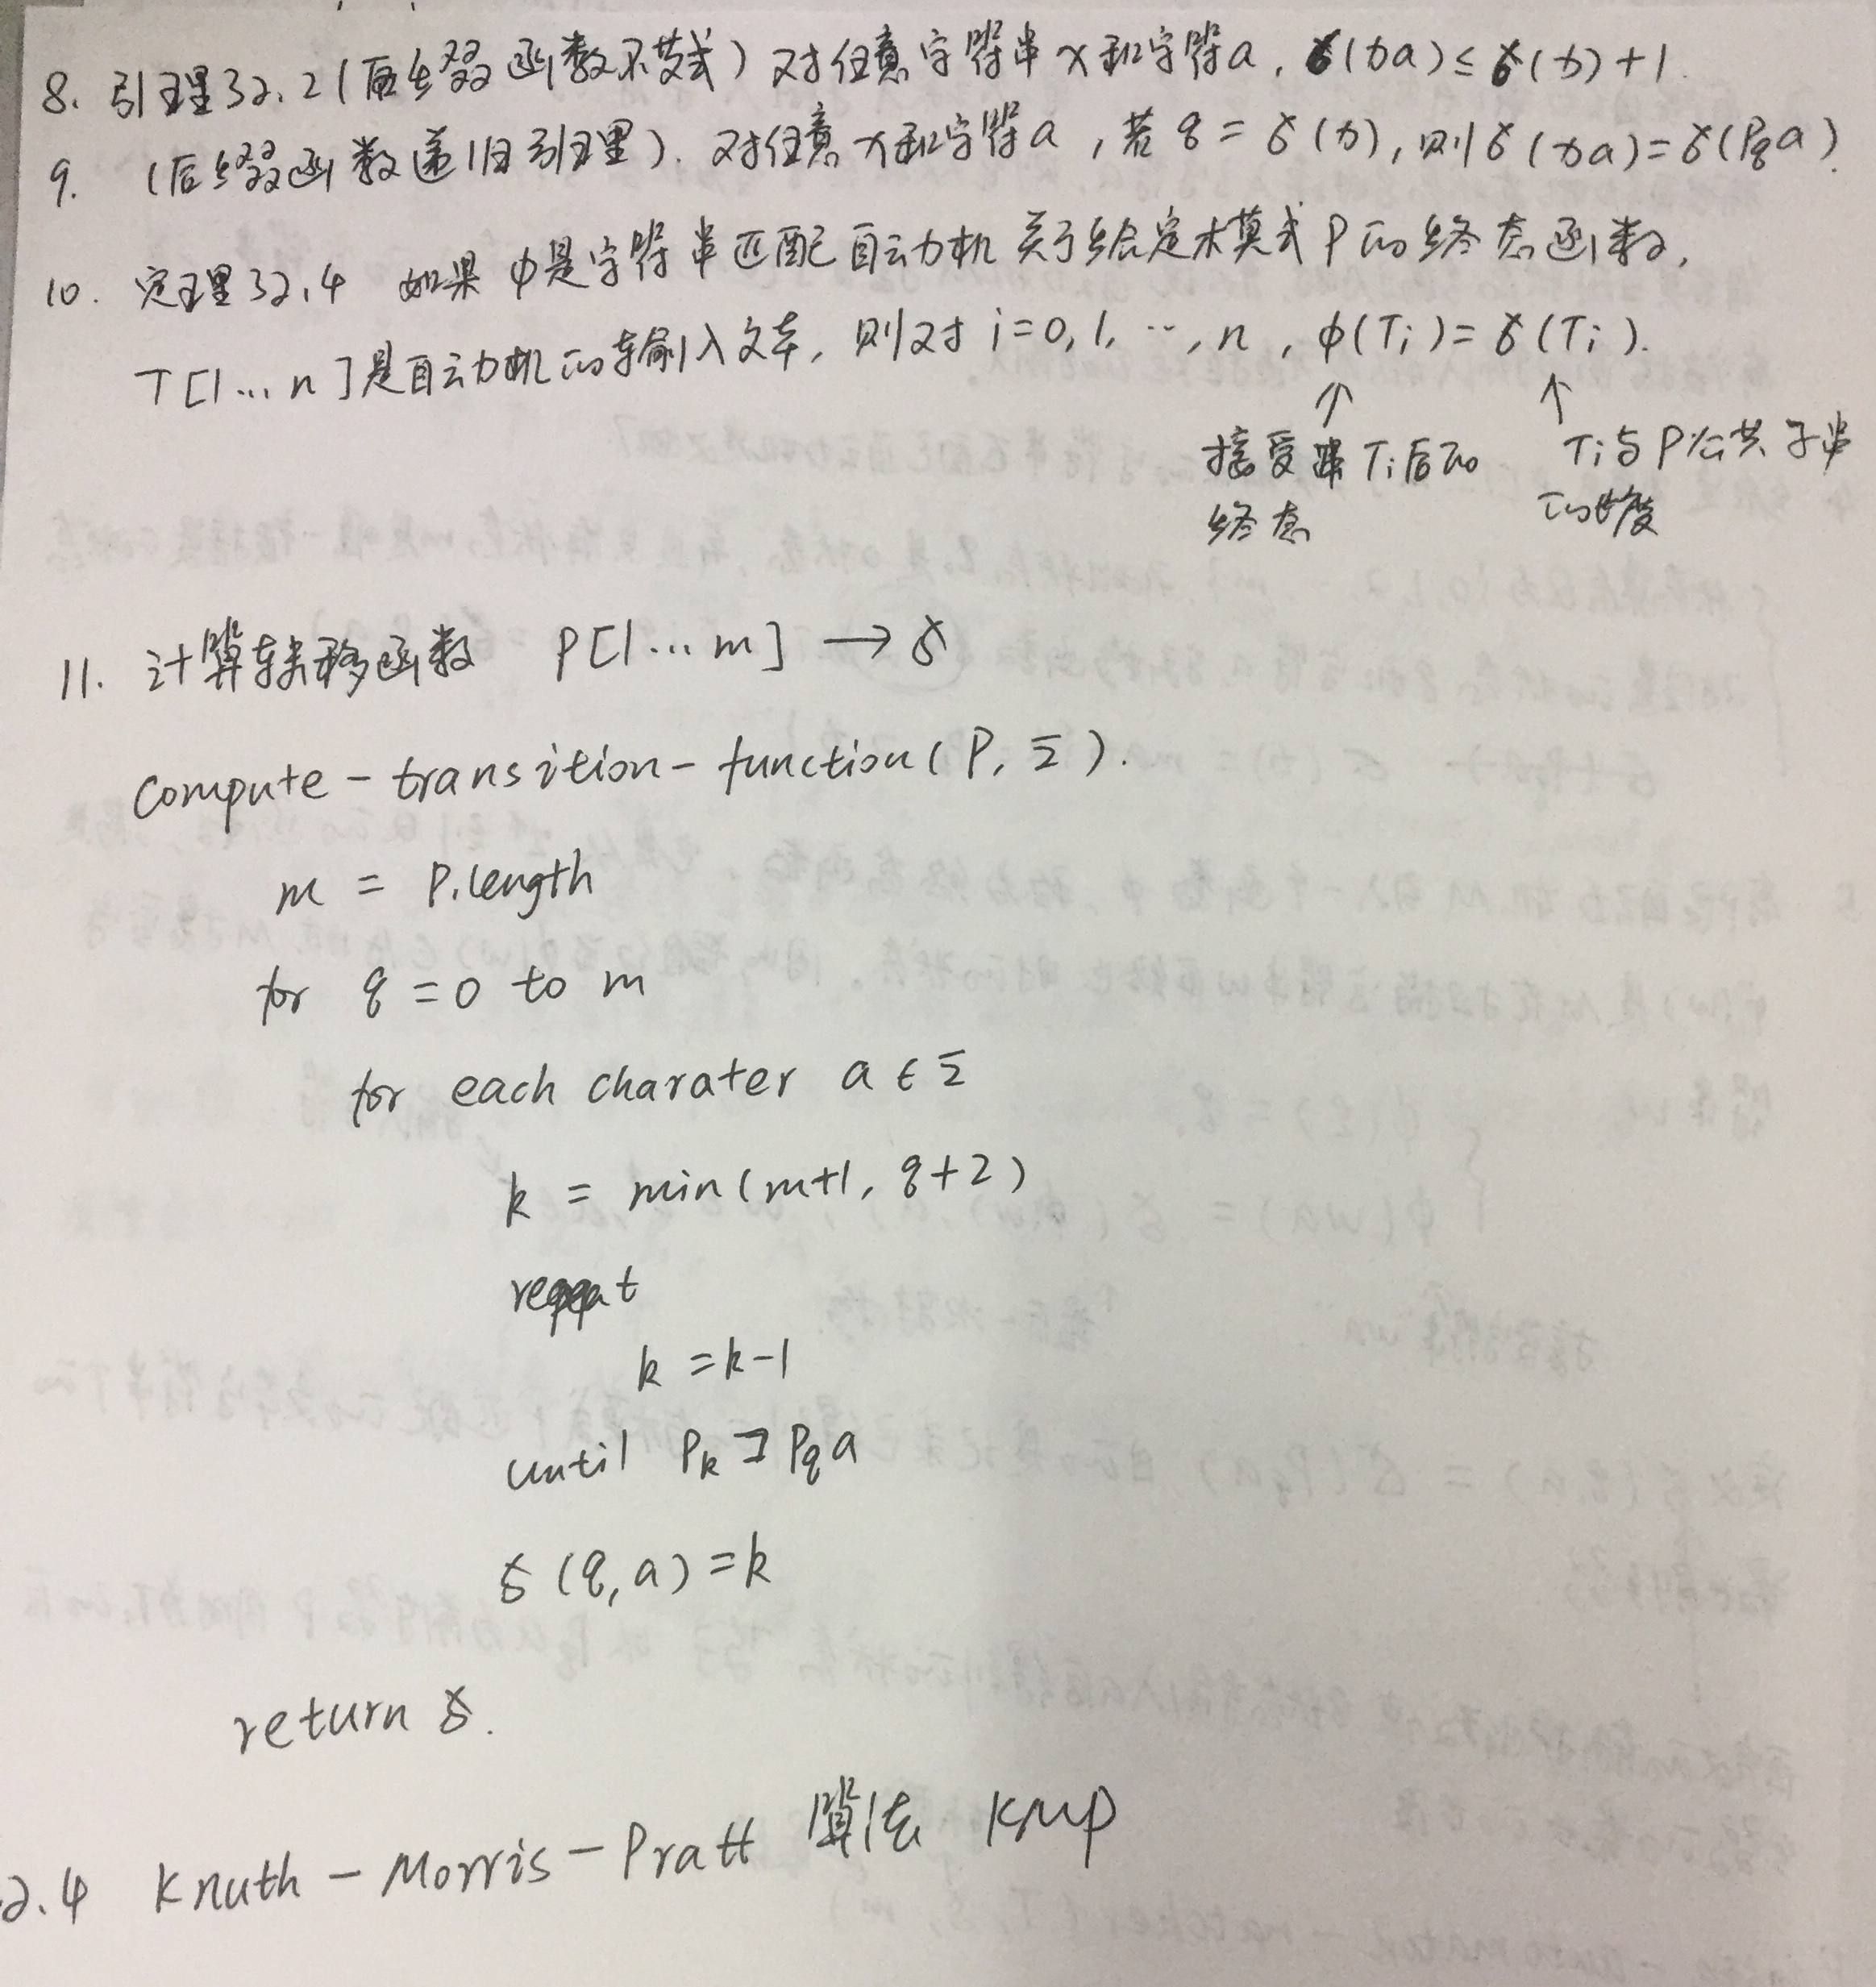 8. 引理32.2(后缀函数不等式) 对任意字符串x和字符a, δ(xa)≤δ(x)+1.
9. (后缀函数递归引理). 对任意x和字符a, 若q=δ(x), 则δ(xa)=δ(Pqa).
10. 定理32.4 如果φ是字符串匹配自动机关于给定模式P的终态函数,
T[1...n]是自动机的输入文本, 则对 i=0,1,…,n, φ(Ti)=δ(Ti).
↑ ↑
接受串Ti后的 Ti与P公共子串
终态 的长度
11. 计算转移函数 P[1...m] → δ
Compute-transition-function(P, Σ).
m = P.length
for q=0 to m
for each charater a∈Σ
k = min(m+1, q+2)
repeat
k=k-1
until Pk⊐Pqa
δ(q,a)=k
return δ.
2.4 Knuth-Morris-Pratt 算法 KMP